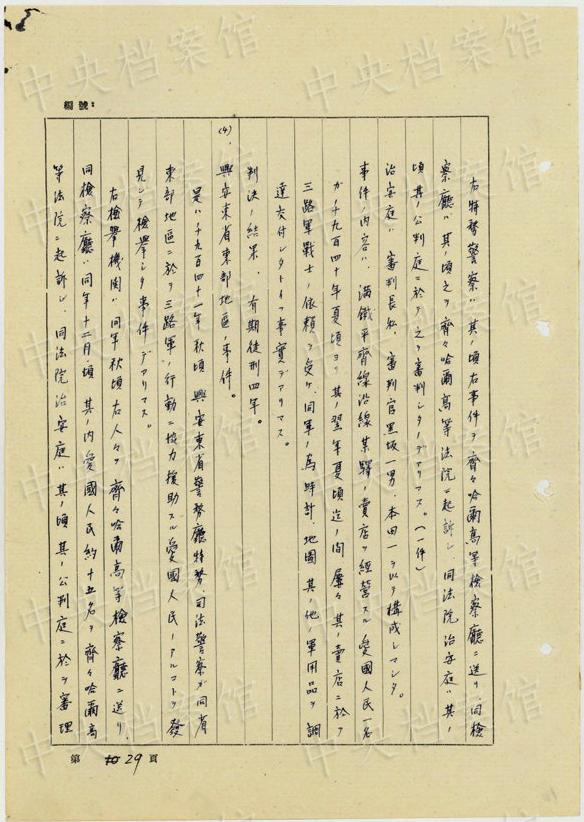 編號:
右特務警察ハ其ノ頃右事件ヲ齊々哈爾高等檢察廳ニ送リ同檢
察廳ハ其ノ頃之ヲ齊々哈爾高等法院ニ起訴シ、同法院治安庭ハ其ノ
頃其ノ公判庭ニ於テ之ヲ審判シタノデアリマス。(一件)
治安庭ハ審判長私、審判官黑坂一男、本田一ヲ以テ構成シマシタ。
事件ノ内容ハ、滿鐵平齊線沿線某驛ノ賣店ヲ經營スル愛國人民一名
ガ千九百四十年夏頃ヨリ其ノ翌年夏頃迄ノ間屢々其ノ賣店ニ於テ
三路軍戰士ノ依賴ヲ受ケ、同軍ノ爲時計、地圖其ノ他ノ軍用品ヲ調
達交付シタトイフ事實デアリマス。
判決ノ結果、有期徒刑四年。
(4)、興安東省東部地區ノ事件。
是ハ千九百四十一年秋頃興安東省警務廳特務(司法)警察ガ同省
東部地區ニ於テ三路軍ノ行動ニ投力援助スル愛國人民ノアルコトヲ發
見シテ檢擧シタ事件デアリマス。
右檢擧機関ハ同年秋頃右人々ヲ齊々哈爾高等檢察廳ニ送リ
同檢察廳ハ同年十二月頃其ノ内愛國人民約十五名ヲ齊々哈爾高
等法院ニ起訴シ、同法院治安庭ハ其ノ頃其ノ公判庭ニ於テ審理
第 29 頁
中央档案馆